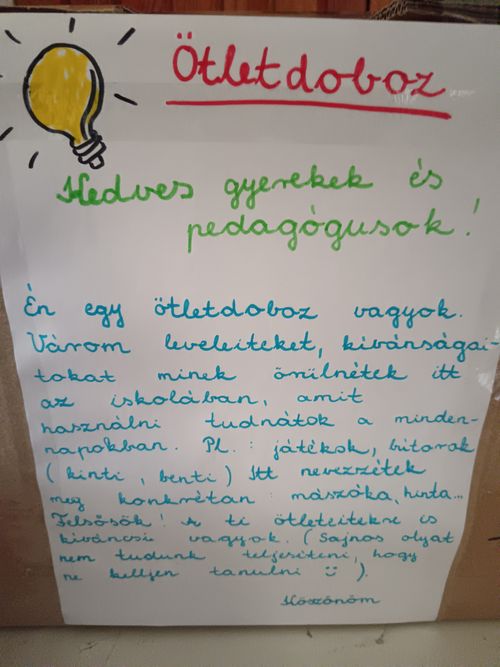 Ötletdoboz
Kedves gyerekek és
pedagógusok!
Én egy ötletdoboz vagyok.
Várom leveleiteket, kívánságai-
tokat minek örülnétek itt
az iskolában, amit
használni tudnátok a minden-
napokban. Pl.: játékok, bútorok
(kinti, benti) Itt nevezzétek
meg konkrétan: mászóka, hinta...
Felsősök! A ti ötleteitekre is
kíváncsi vagyok. (Sajnos olyat
nem tudunk teljesíteni, hogy
ne kelljen tanulni ☺).
Köszönöm